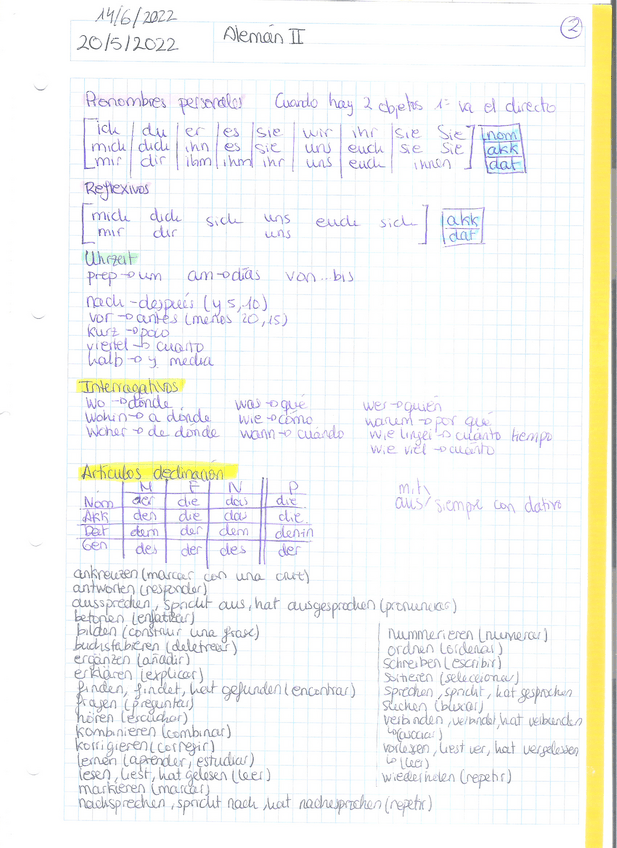 14/6/2022
20/5/2022
Alemán II
2
Pronombres personales Cuando hay 2 objetos 1º va el directo
ich du er es sie wir ihr sie Sie nom
mich dich ihn es sie uns euch sie Sie akk
mir dir ihm ihm ihr uns euch ihnen dat
Reflexivos
mich dich sich uns euch sich akk
mir dir uns dat
Uhrzeit
prep → um am → días von..bis
nach → después (y 5, 10)
vor → antes (menos 20, 15)
kurz → poco
viertel → cuarto
halb → y media
Interrogativos
wo → dónde was → qué wer → quién
wohin → a dónde wie → cómo warum → por qué
woher → de dónde wann → cuándo wie langer → cuánto tiempo
wie viel → cuánto
Artículos declinación
M F N P
Nom der die das die
Akk den die das die
Dat dem der dem den-n
Gen des der des der
mit
aus siempre con dativo
ankreuzen (marcar con una cruz)
antworten (responder)
aussprechen, spricht aus, hat ausgesprochen (pronunciar)
betonen (enfatizar)
bilden (construir una frase)
buchstabieren (deletrear)
ergänzen (añadir)
erklären (explicar)
finden, findet, hat gefunden (encontrar)
fragen (preguntar)
hören (escuchar)
kombinieren (combinar)
korrigieren (corregir)
lernen (aprender, estudiar)
lesen, liest, hat gelesen (leer)
markieren (marcar)
nachsprechen, spricht nach, hat nachesprochen (repetir)
nummerieren (numerar)
ordnen (ordenar)
schreiben (escribir)
sortieren (seleccionar)
sprechen, spricht, hat gesprochen
suchen (buscar)
verbinden, verbindet, hat verbunden
↳ (asociar)
vorlesen, liest vor, hat vorgelesen
↳ (leer)
wiederholen (repetir)